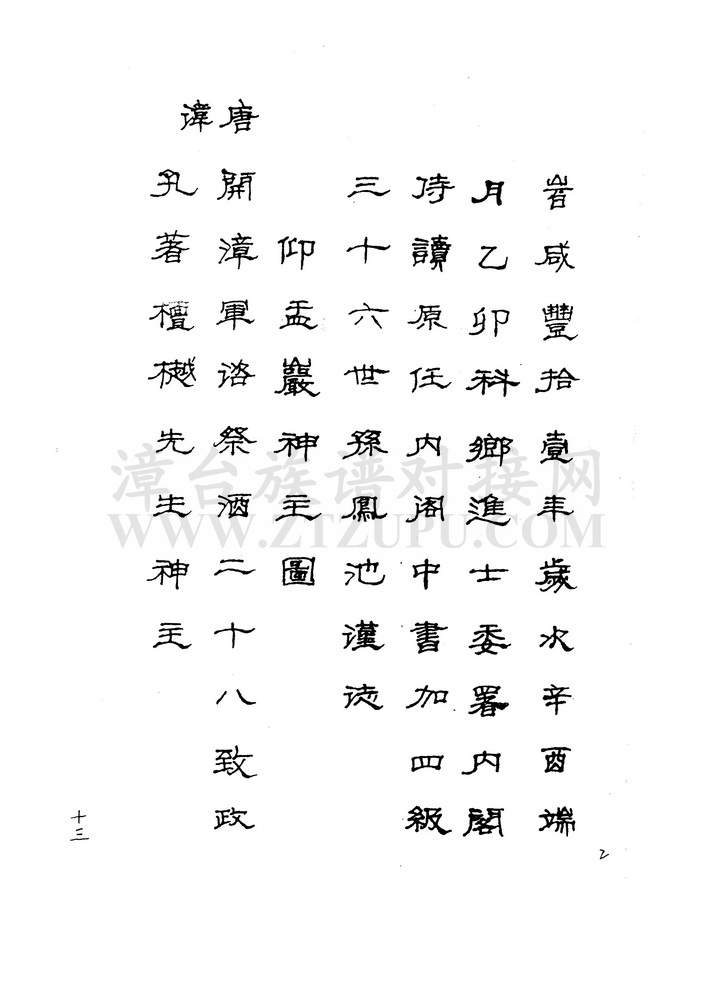 旹咸豐拾壹年歲次辛酉端
月乙卯科鄉進士委署內閣
侍讀原任內閣中書加四級
三十六世孫鳳池謹徳
仰盂巖神主圖
唐開漳軍諮祭酒二十八致政
諱孔著檀樾先生神主
十三
2
漳台族谱对接网
WWW.ZTZUPU.COM